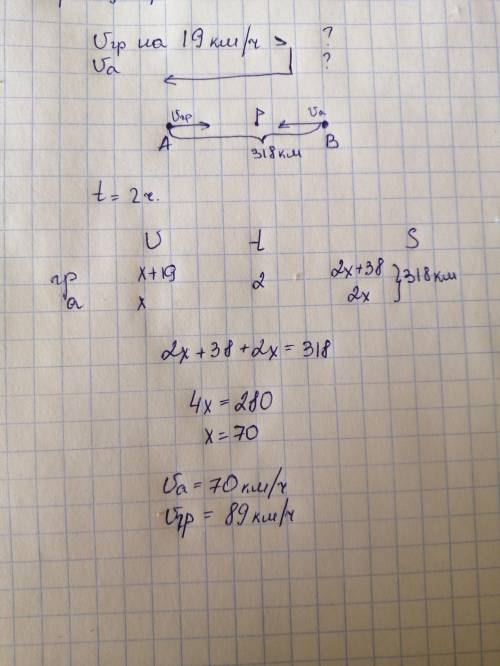 Vгр на 19 км/ч > ?
Vа ?
Vгр P Vа
A B
318 км
t = 2 ч.
V t S
гр x+19 2 2x+38 } 318 км
а x 2x
2x + 38 + 2x = 318
4x = 280
x = 70
Vа = 70 км/ч
Vгр = 89 км/ч